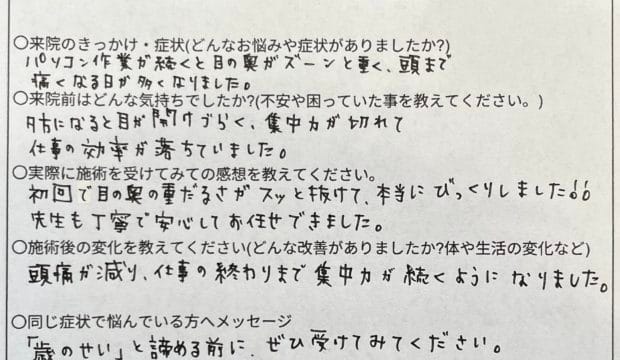 ○来院のきっかけ・症状(どんなお悩みや症状がありましたか?)
パソコン作業が続くと目の奥がズーンと重く、頭まで
痛くなる日が多くなりました。
○来院前はどんな気持ちでしたか?(不安や困っていた事を教えてください。)
夕方になると目が開けづらく、集中力が切れて
仕事の効率が落ちていました。
○実際に施術を受けてみての感想を教えてください。
初回で目の奥の重だるさがスッと抜けて、本当にびっくりしました!!
先生も丁寧で安心してお任せできました。
○施術後の変化を教えてください(どんな改善がありましたか?体や生活の変化など)
頭痛が減り、仕事の終わりまで集中力が続くようになりました。
○同じ症状で悩んでいる方へメッセージ
「歳のせい」と諦める前に、ぜひ受けてみてください。